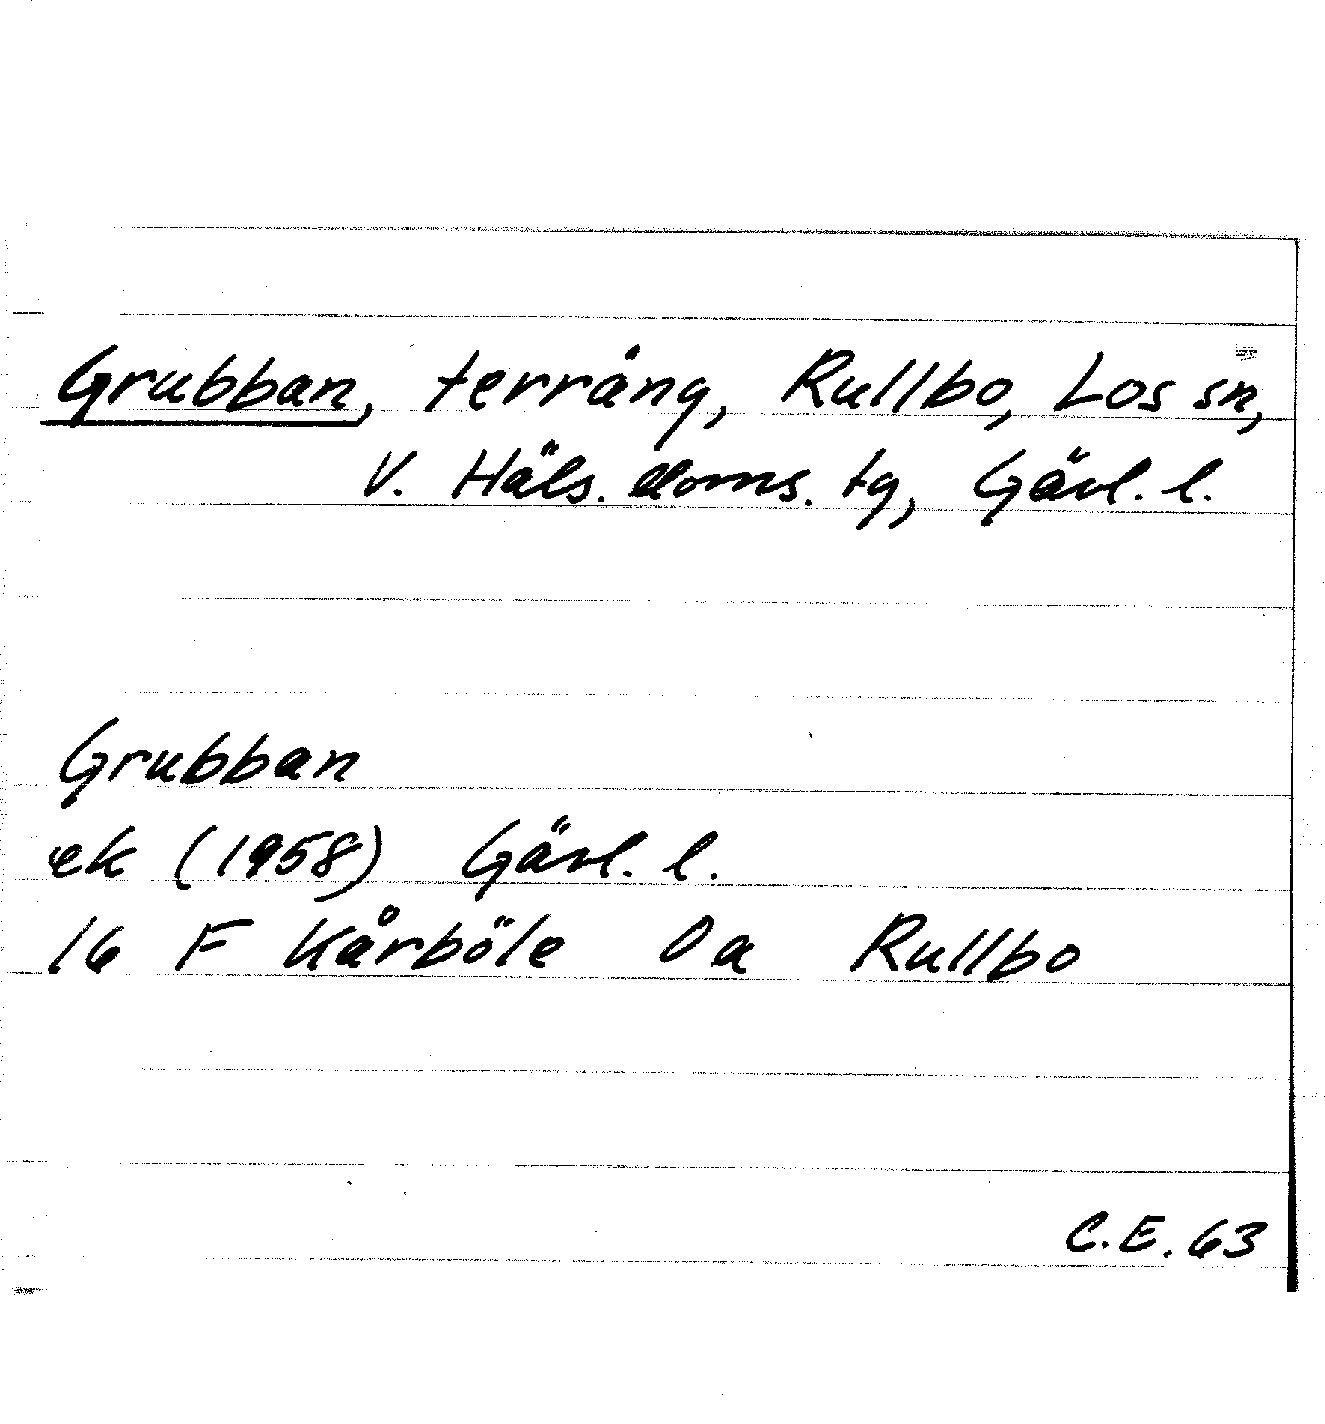 Grubban, terräng, Rullbo, Los sn,
V. Häls. doms. tg, Gävl. l.
Grubban
ek (1958) Gävl. l.
16 F Kårböle 0 a Rullbo
C.E. 63